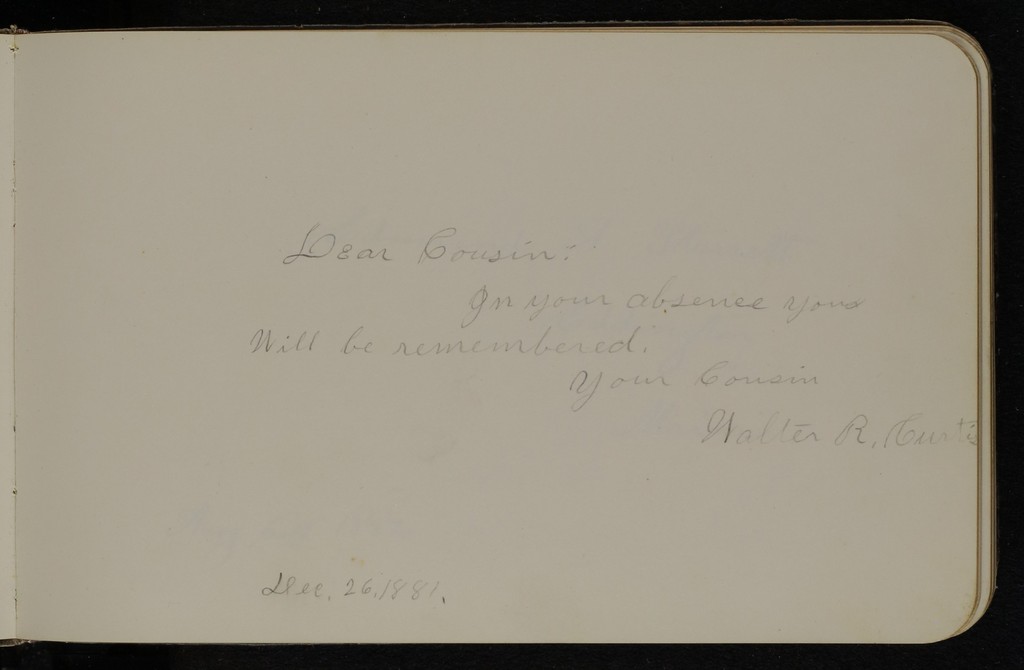 Dear Cousin:
In your absence you
Will be remembered.
Your Cousin
Walter R. Curtis
Dec. 26, 1881.